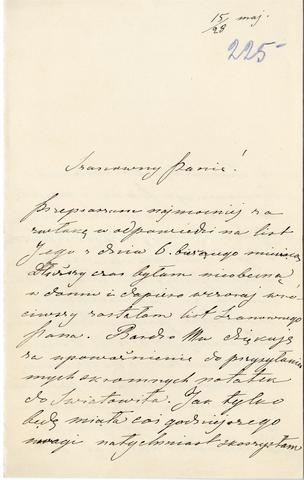 15 maj.
28
225
Szanowny Panie!
Przepraszam najmocniej za
zwłokę w odpowiedzi na list
Jego z dnia 6. bieżącego miesiąca
Dłuższy czas byłam nieobecną
w domu i dopiero wczoraj wró-
ciwszy zastałam list Szanownego
Pana. Bardzo Mu dziękuję
za upoważnienie do przysyłania
mych skromnych notatek
do Światowita. Jak tylko
będę miała coś godniejszego
uwagi natychmiast skorzystam